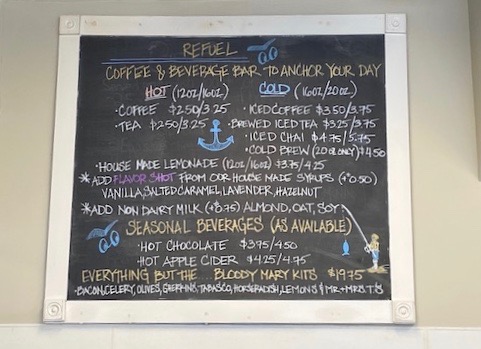 REFUEL
COFFEE & BEVERAGE BAR TO ANCHOR YOUR DAY
HOT (12OZ/16OZ) COLD (16OZ/20OZ)
• COFFEE $2.50/3.25 • ICED COFFEE $3.50/3.75
• TEA $2.50/3.25 • BREWED ICED TEA $3.25/3.75
• ICED CHAI $4.75/5.75
• COLD BREW (20OZ ONLY) $4.50
• HOUSE MADE LEMONADE (12OZ/16OZ) $3.75/4.25
* ADD FLAVOR SHOT FROM OUR HOUSE MADE SYRUPS (+0.50)
VANILLA, SALTED CARAMEL, LAVENDER, HAZELNUT
* ADD NON DAIRY MILK (+0.75) ALMOND, OAT, SOY
SEASONAL BEVERAGES (AS AVAILABLE)
• HOT CHOCOLATE $3.95/4.50
HOT APPLE CIDER $4.25/4.95
EVERYTHING BUT THE BLOODY MARY KITS $19.75
• BACON, CELERY, OLIVES, TABASCO, HORSERADISH, LEMONS & MR + MRS T'S